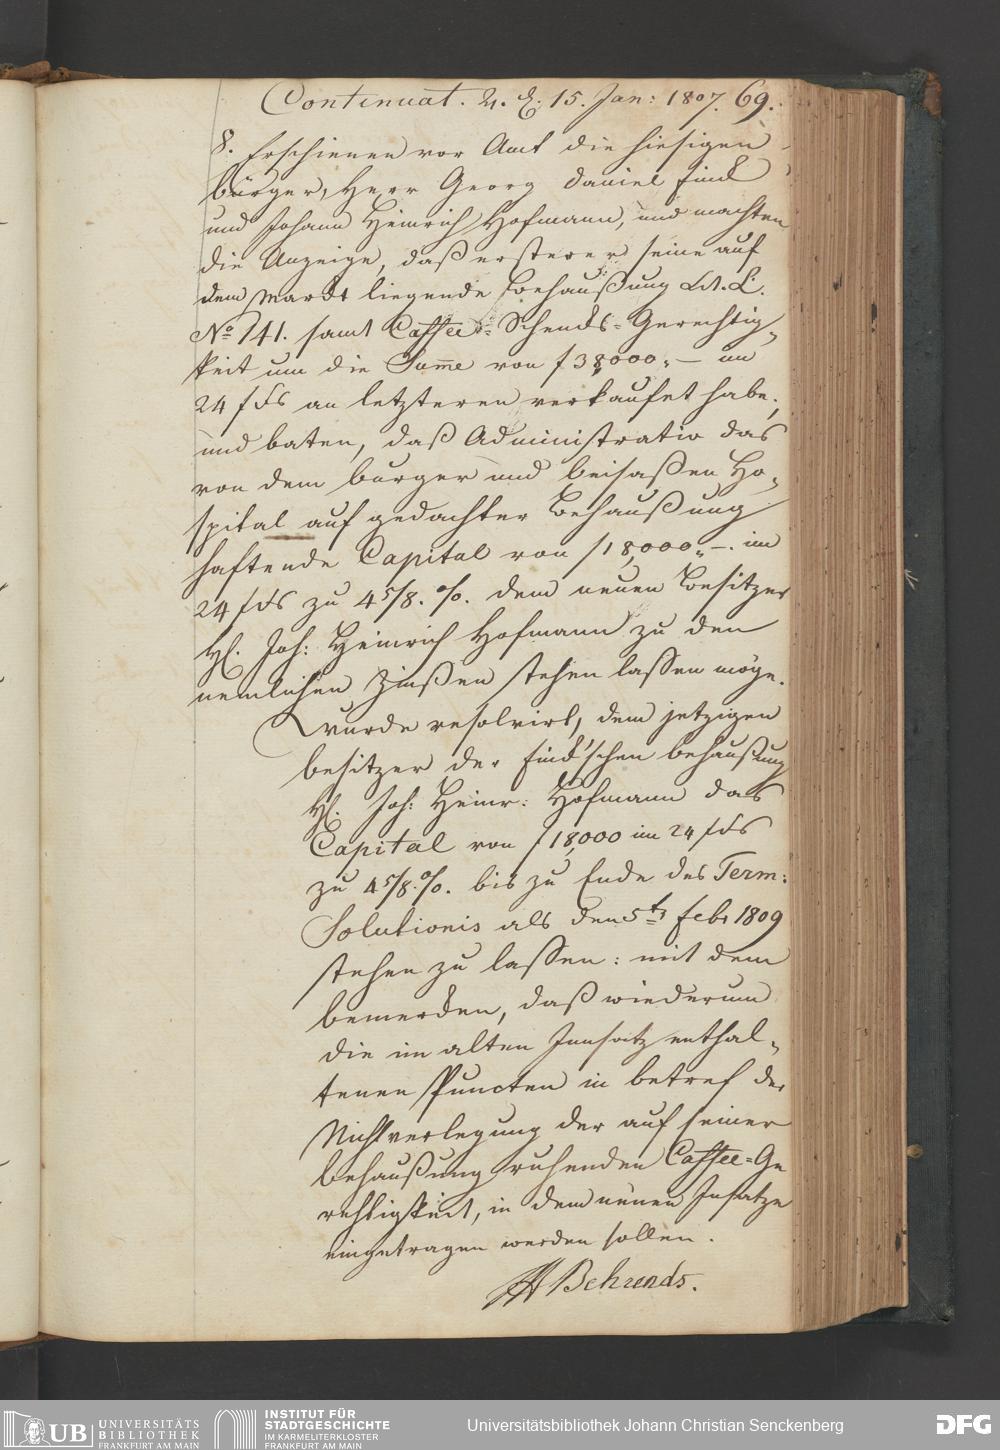 Continuat. 2. d. 15. Jan: 1807. 69.
8. Erschienen vor Amt die hiesigen
bürger, Herr Georg Daniel Finck
und Johann Heinrich Hofmann, und machten
die Anzeige, daß ersterer seine auf
dem Marckt liegende Behaußung Lit. L.
No. 141. samt Caffee-Schencks-Gerechtig-
keit um die Summe von f 38,000,- im
24 f Fs an letzteren verkaufet habe,
und baten, daß Administratio das
von dem bürger und beisaßen Ho-
spital auf gedachter Behaußung
haftende Capital von f 18,000,-. im
24 f Fs zu 4 5/8. %. dem neuen Besitzer
H. Joh: Heinrich Hofmann zu den
nemlichen Zinßen stehen lassen möge.
wurde resolvirt, dem jetzigen
besitzer der Finck'schen behaußung
H. Joh: Heinr: Hofmann das
Capital von f 18,000 im 24 f Fs
zu 4 5/8. %. bis zu Ende des Term:
Solutionis als den 5ten Febr 1809
stehen zu lassen: mit dem
bemercken, daß wiederum
die im alten Innsatz enthal-
tenen Puncten in betref der
Nichtverlegung der auf seiner
behaußung ruhenden Caffee-Ge
rechtigkeit, in dem neuen Insatze
eingetragen werden sollen.
Behrends.
UB UNIVERSITÄTS
BIBLIOTHEK
FRANKFURT AM MAIN
INSTITUT FÜR
STADTGESCHICHTE
IM KARMELITERKLOSTER
FRANKFURT AM MAIN
Universitätsbibliothek Johann Christian Senckenberg
DFG